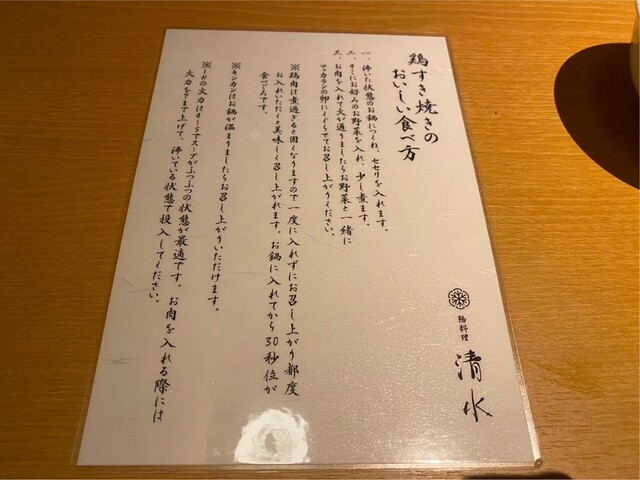 鶏すき焼きの
おいしい食べ方
一、沸いた状態のお鍋につくね、セセリを入れます。
二、そこにお好みのお野菜を入れ、少し煮ます。
三、お肉を入れて火が通りましたらお野菜と一緒に
マッカランの卵にくぐらせてお召し上がりください。
※鶏肉は煮過ぎると固くなりますので一度に入れずにお召し上がり都度
お入れいただくと美味しく召し上がれます。お鍋に入れてから30秒位が
食べごろです。
※キンカンはお鍋が温まりましたらお召し上がりいただけます。
※IHの火力は4〜5でスープがふつふつの状態が最適です。お肉を入れる際には
火力を7まで上げて、沸いている状態で投入してください。
鶏料理
清水